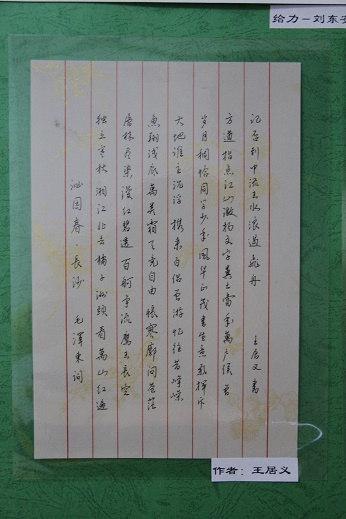 给力－刘东
沁园春·長沙 毛澤東词
独立寒秋湘江北去橘子洲头看萬山红遍
层林尽染漫红碧透百舸争流鹰击長空
鱼翔浅底萬类霜天竞自由怅寥廓问苍茫
大地谁主沉浮携来百侣曾游忆往昔峥嵘
岁月稠恰同学少年风华正茂书生意气挥斥
方遒指点江山激扬文字粪土当年萬户侯曾
记否到中流击水浪遏飞舟
王居义书
作者：王居义